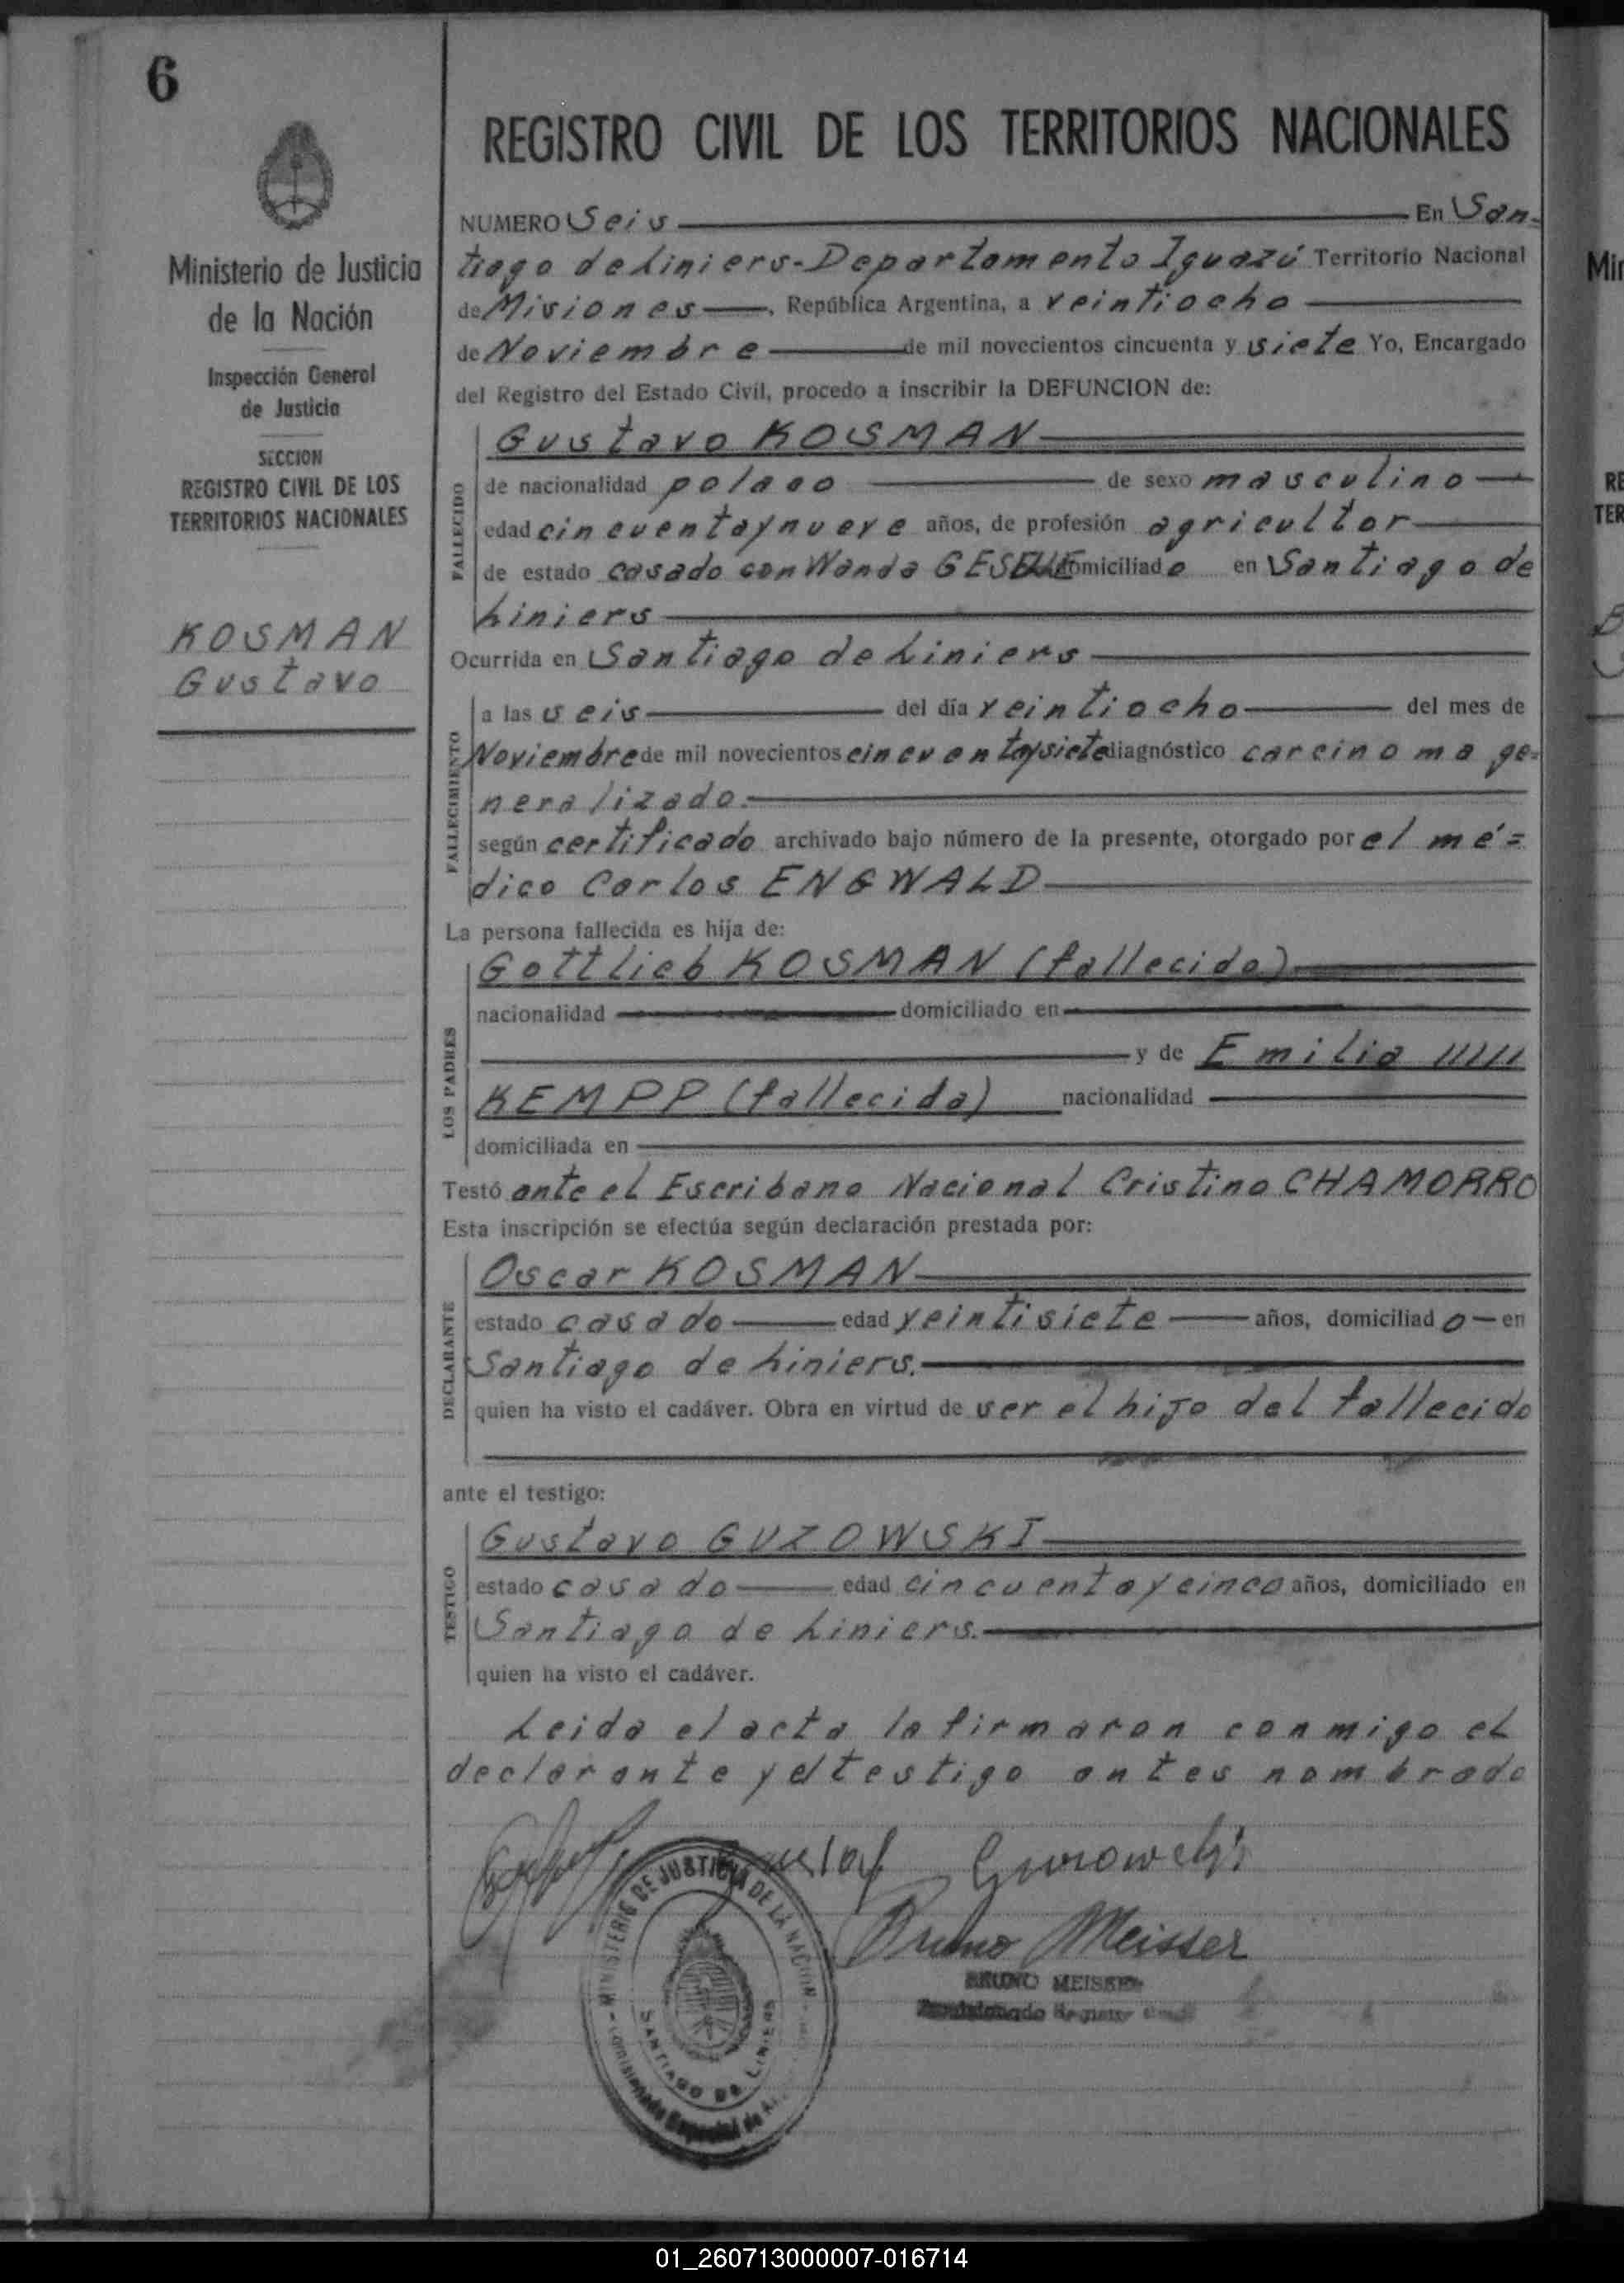 6
Ministerio de Justicia
de la Nación
Inspección General
de Justicia
SECCION
REGISTRO CIVIL DE LOS
TERRITORIOS NACIONALES
KOSMAN
Gustavo
REGISTRO CIVIL DE LOS TERRITORIOS NACIONALES
NUMERO Seis En San-
tiago de Liniers-Departamento Iguazú Territorio Nacional
de Misiones, República Argentina, a veintiocho
de Noviembre de mil novecientos cincuenta y siete Yo, Encargado
del Registro del Estado Civil, procedo a inscribir la DEFUNCION de:
FALLECIDO
Gustavo KOSMAN
de nacionalidad polaco de sexo masculino
edad cincuentaynueve años, de profesión agricultor
de estado casado con Wanda domiciliado en Santiago de
Liniers
Ocurrida en Santiago de Liniers
FALLECIMIENTO
a las seis del día veintiocho del mes de
Noviembre de mil novecientos cincuentaysiete diagnóstico carcinoma ge=
neralizado.
según certificado archivado bajo número de la presente, otorgado por el mé=
dico Carlos ENGWALD
La persona fallecida es hija de:
LOS PADRES
Gottlieb KOSMAN (fallecido)
nacionalidad domiciliado en
y de Emilia
KEMPP (fallecida) nacionalidad
domiciliada en
Testó ante el Escribano Nacional Cristino CHAMORRO
Esta inscripción se efectúa según declaración prestada por:
DECLARANTE
Oscar KOSMAN
estado casado edad veintisiete años, domiciliado en
Santiago de Liniers.
quien ha visto el cadáver. Obra en virtud de ser el hijo del fallecido
ante el testigo:
TESTIGO
Gustavo GUZOWSKI
estado casado edad cincuentaycinco años, domiciliado en
Santiago de Liniers.
quien ha visto el cadáver.
Leida el acta la firmaron conmigo el
declarante y el testigo antes nombrado
Bruno Meisser
BRUNO MEISSER
MINISTERIO DE JUSTICIA DE LA NACION
SANTIAGO DE LINIERS
Min
RE
TER
01_260713000007-016714